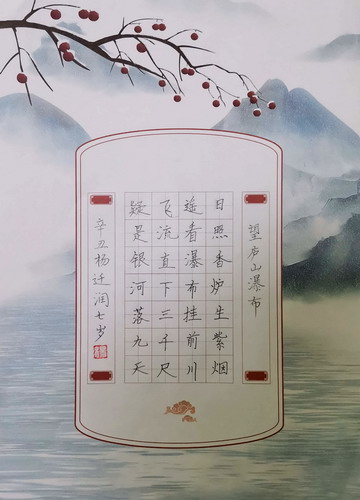 望庐山瀑布
日照香炉生紫烟
遥看瀑布挂前川
飞流直下三千尺
疑是银河落九天
辛丑杨迁润七岁